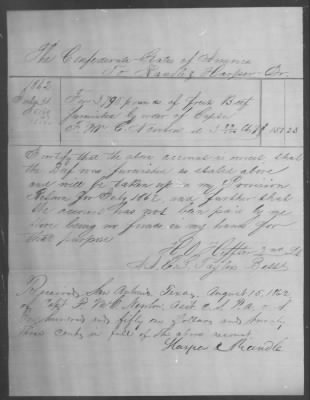 The Confederate States of America
To Randle & Harper Dr.
1862
July 31
For 3790 pounds of fresh Beef
furnished by order of Capt
F. M. C. Newton at 151 23
I certify that the above account is correct that
the Beef was furnished as stated above
and will be taken up on my Provision
Return for July 1862, and further that
the account has not been paid by me
there being no funds in my hands for
that purpose
2nd Lt
Received, San Antonio, Texas, August 15, 1862
of Capt Newton, Asst C. S. P. A. C. S.
One hundred and fifty one Dollars and twenty
three cents in full of the above account.
Harper & Randle